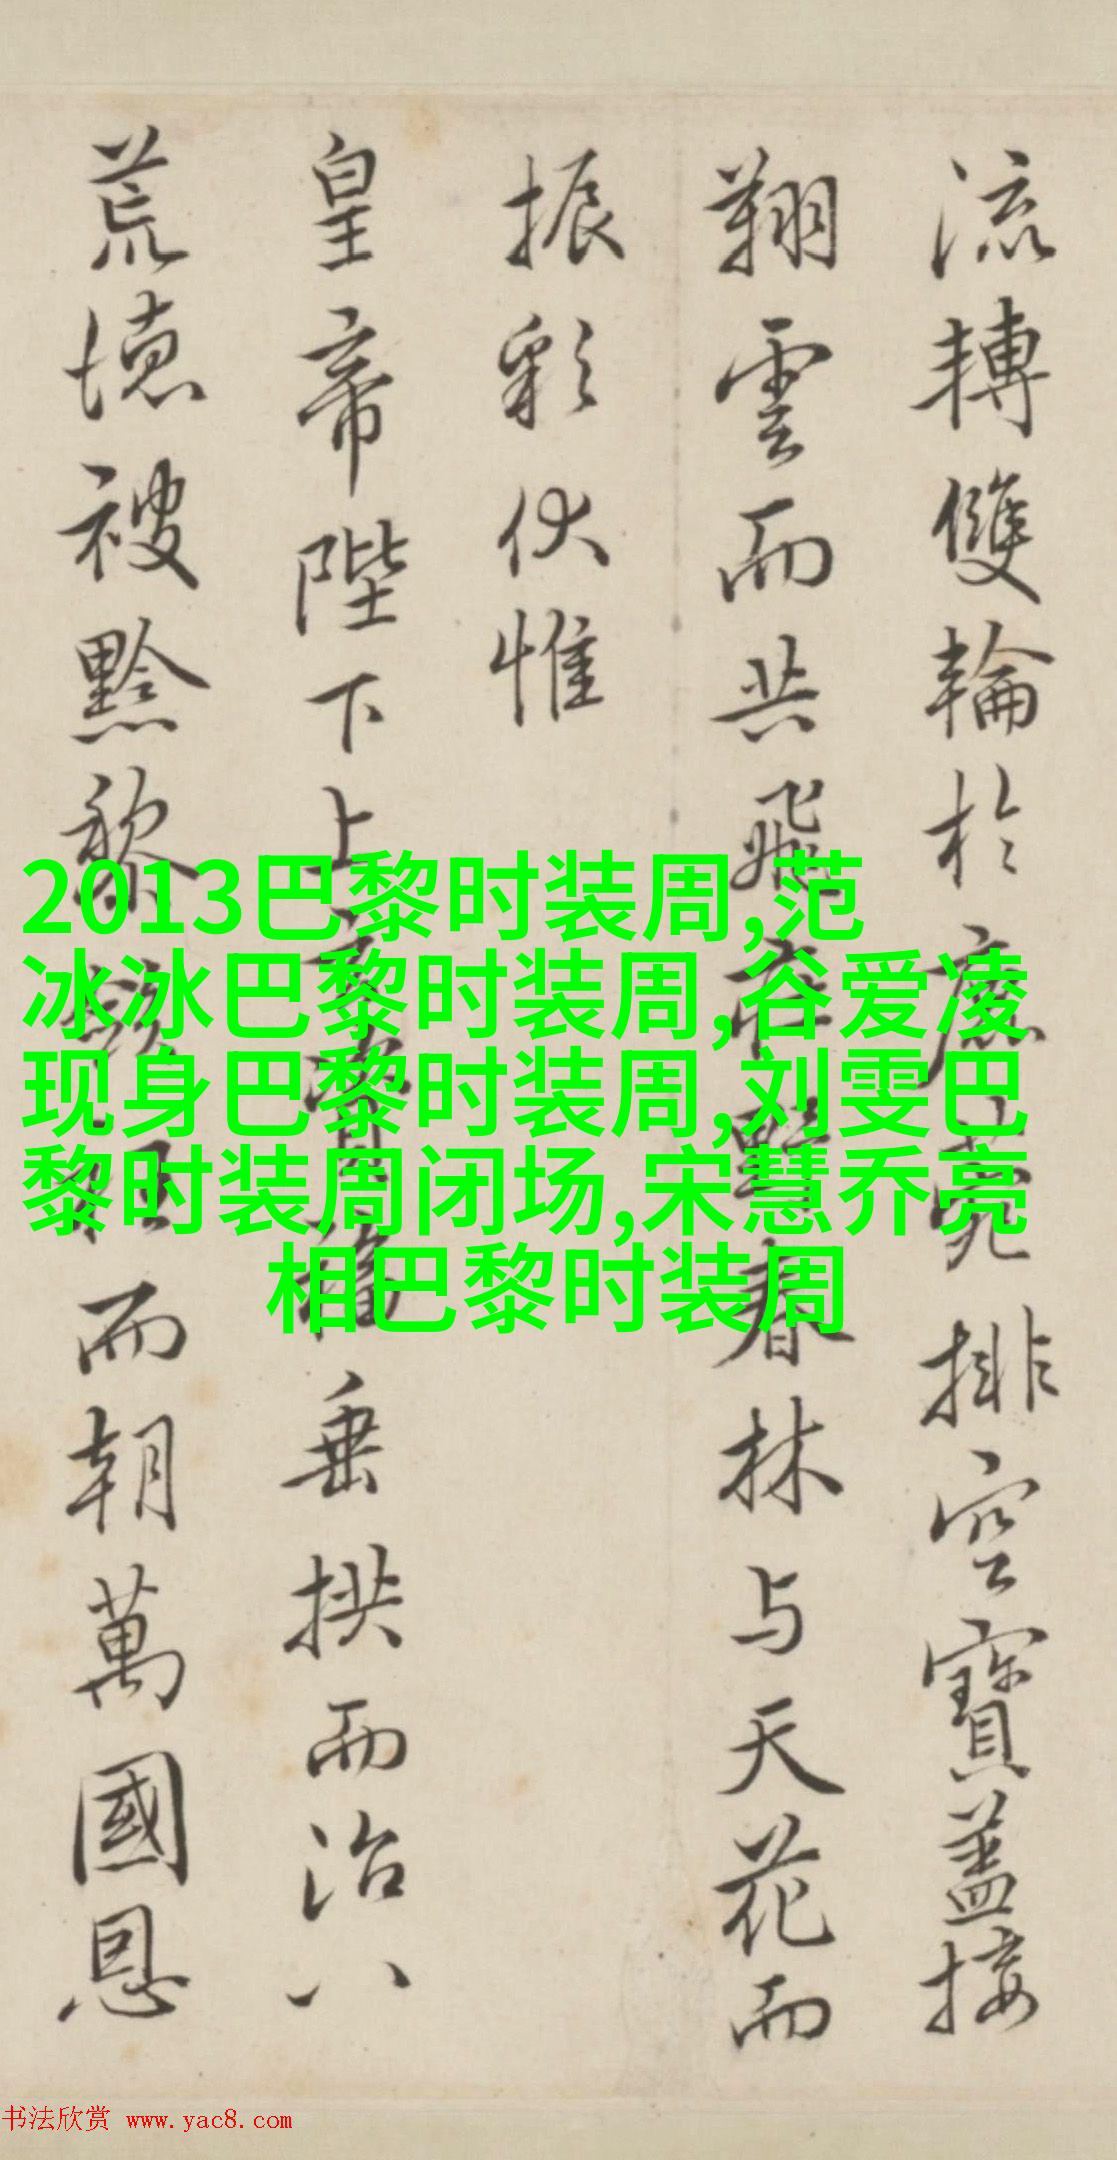 流轉雙輪於鹿菀排空寶蓋接
翔雲而共飛莊野春林与天花而
振彩伏惟
皇帝陛下上玄資福垂拱而治八
荒德被黔黎斂衽而朝萬國恩
2013巴黎时装周,范
冰冰巴黎时装周,谷爱凌
现身巴黎时装周,刘雯巴
黎时装周闭场,宋慧乔亮
相巴黎时装周
书法欣赏 www.yac8.com